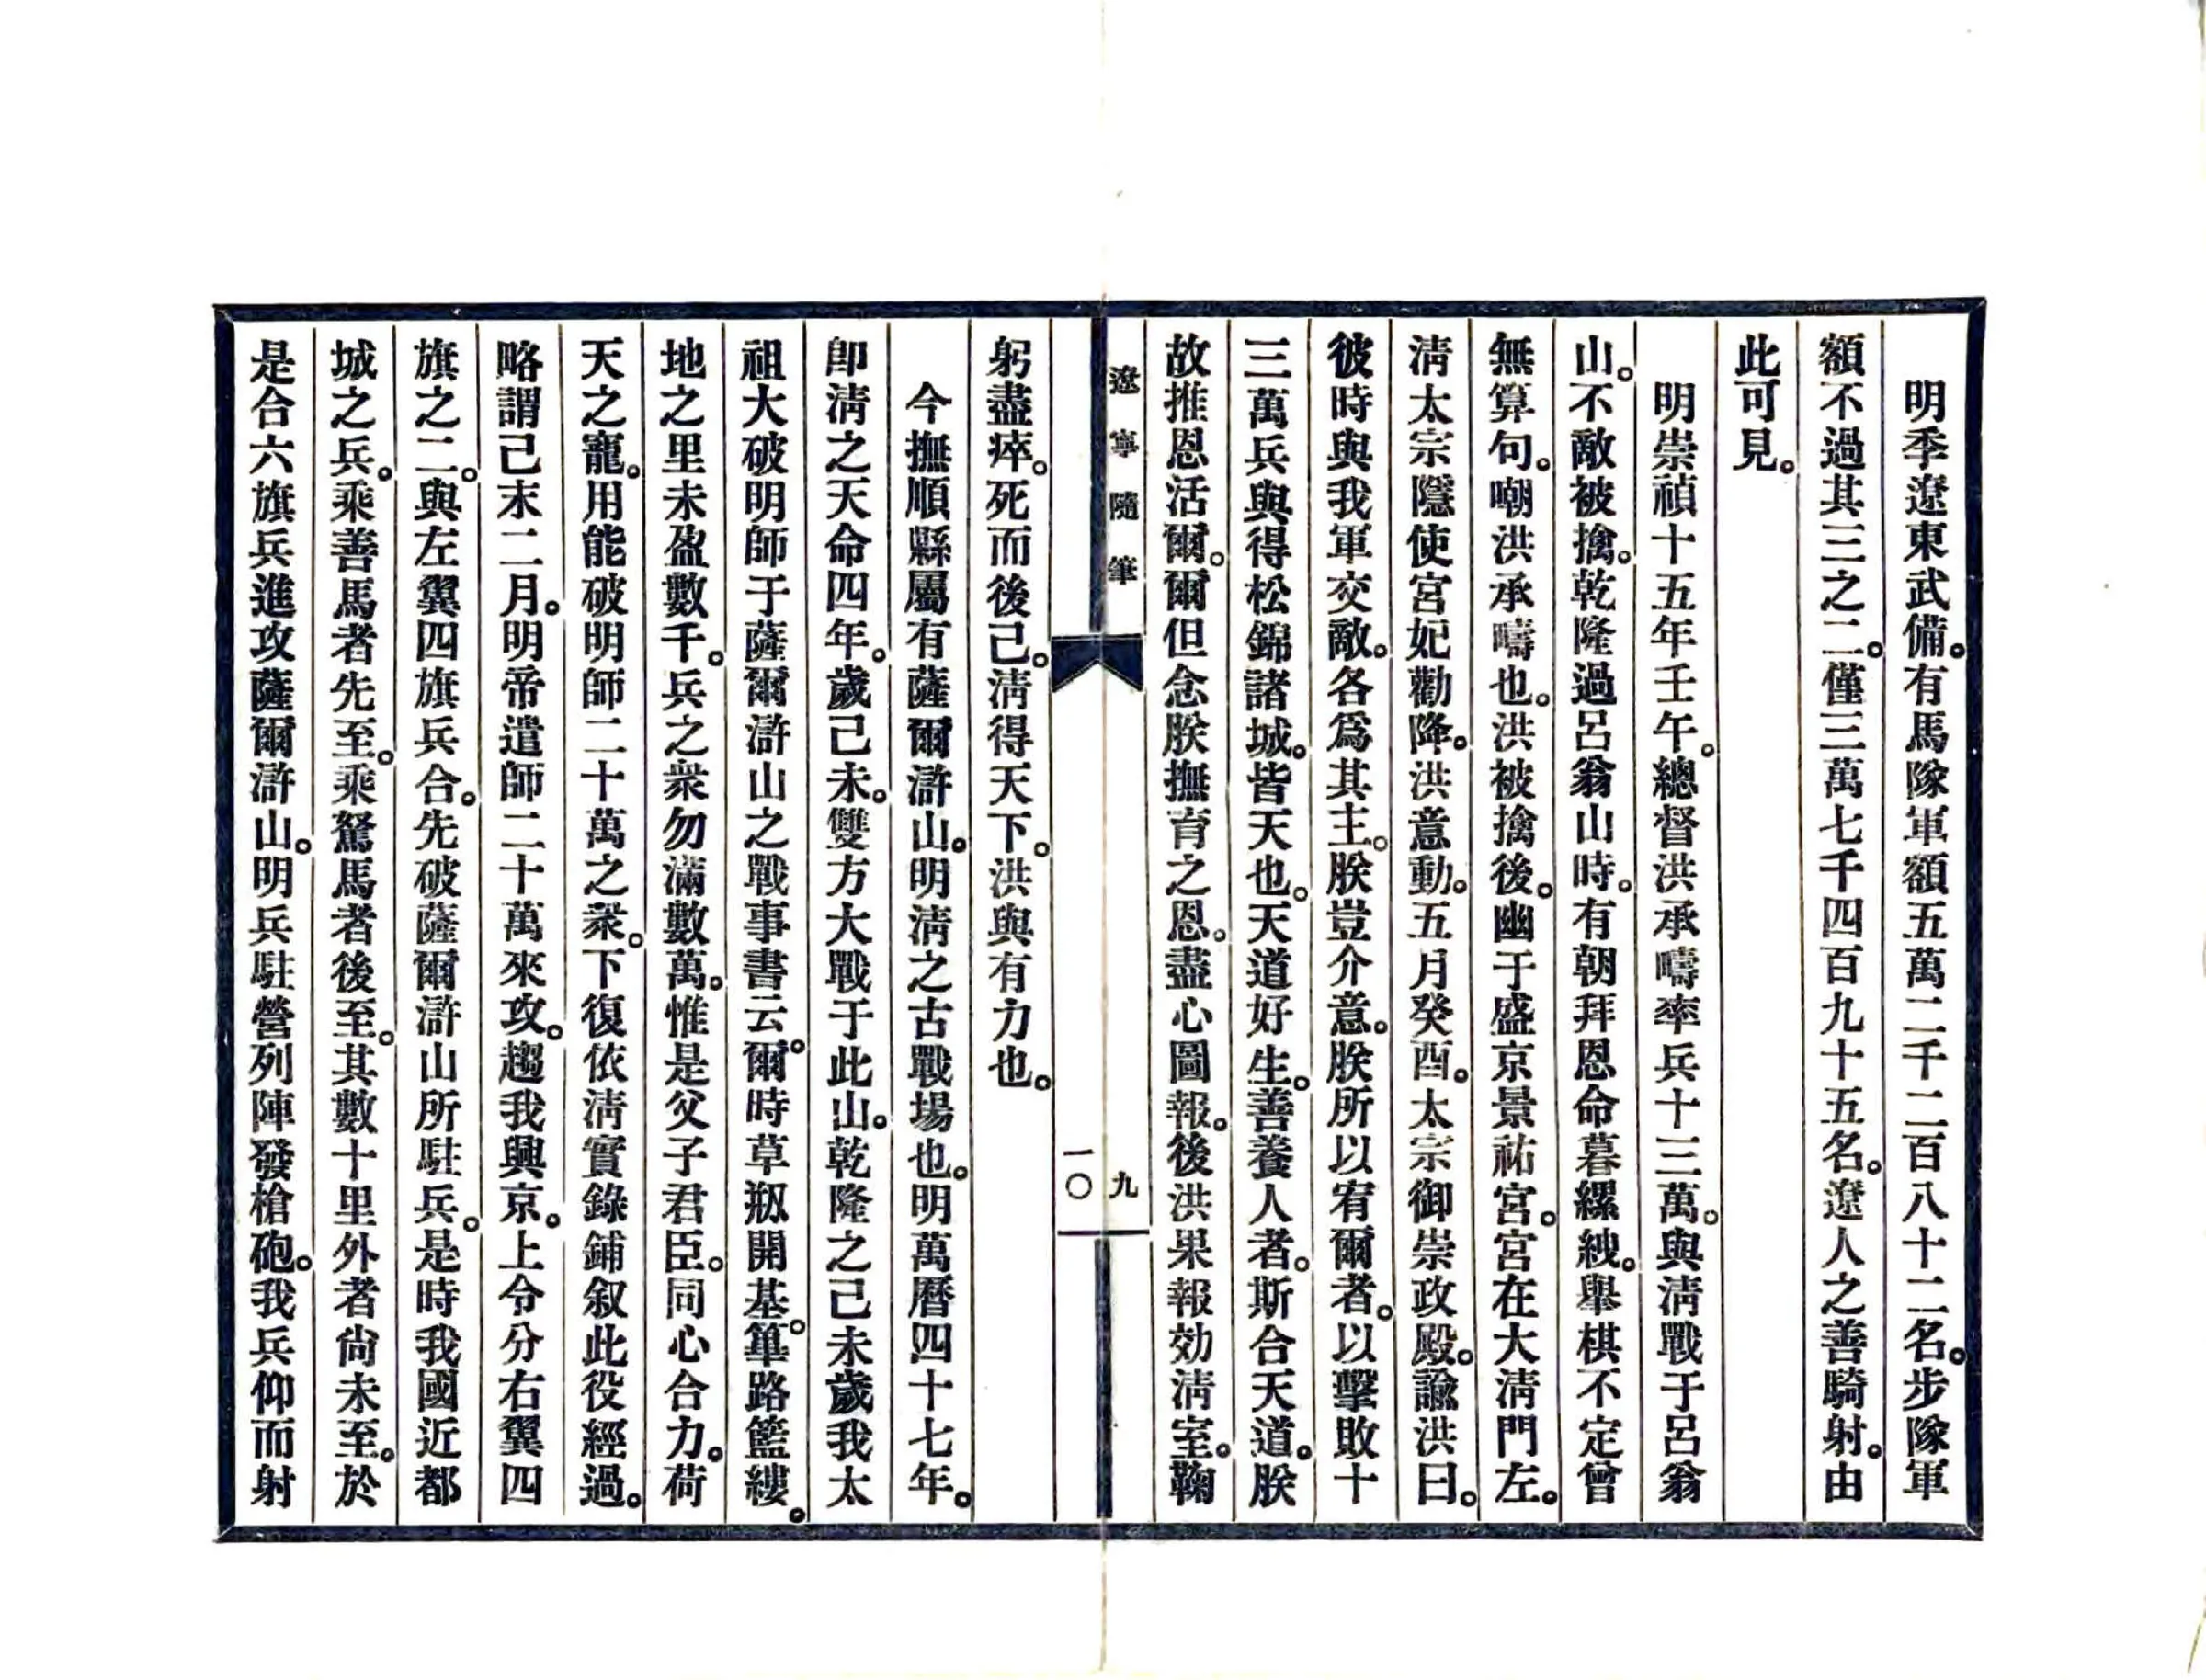 明季遼東武備。有馬隊軍額五萬二千二百八十二名。步隊軍
額不過其三之二。僅三萬七千四百九十五名。遼人之善騎射。由
此可見。
明崇禎十五年壬午。總督洪承疇率兵十三萬。與清戰于呂翁
山。不敵被擒。乾隆過呂翁山時。有朝拜恩命暮縲絏。舉棋不定曾
無算句。嘲洪承疇也。洪被擒後。幽于盛京景祐宮。宮在大清門左。
清太宗隱使宮妃勸降。洪意動。五月癸酉。太宗御崇政殿。諭洪曰。
彼時與我軍交敵。各為其主。朕豈介意。朕所以宥爾者。以擊敗十
三萬兵與得松錦諸城。皆天也。天道好生。善養人者。斯合天道。朕
故推恩活爾。爾但念朕撫育之恩。盡心圖報。後洪果報効清室。鞠
遼寧隨筆
九
一〇
躬盡瘁。死而後己。清得天下。洪與有力也。
今撫順縣屬有薩爾滸山。明清之古戰場也。明萬曆四十七年。
即清之天命四年。歲己未。雙方大戰于此山。乾隆之己未歲我太
祖大破明師于薩爾滸山之戰事書云。爾時草剏開基。篳路籃縷。
地之里未盈數千。兵之衆勿滿數萬。惟是父子君臣。同心合力。荷
天之寵。用能破明師二十萬之衆。下復依清實錄鋪叙此役經過。
略謂己末二月。明帝遣師二十萬來攻。趨我興京。上令分右翼四
旗之二。與左翼四旗兵合。先破薩爾滸山所駐兵。是時我國近都
城之兵。乘善馬者先至。乘駑馬者後至。其數十里外者尙未至。於
是合六旗兵進攻薩爾滸山。明兵駐營列陣發槍砲。我兵仰而射